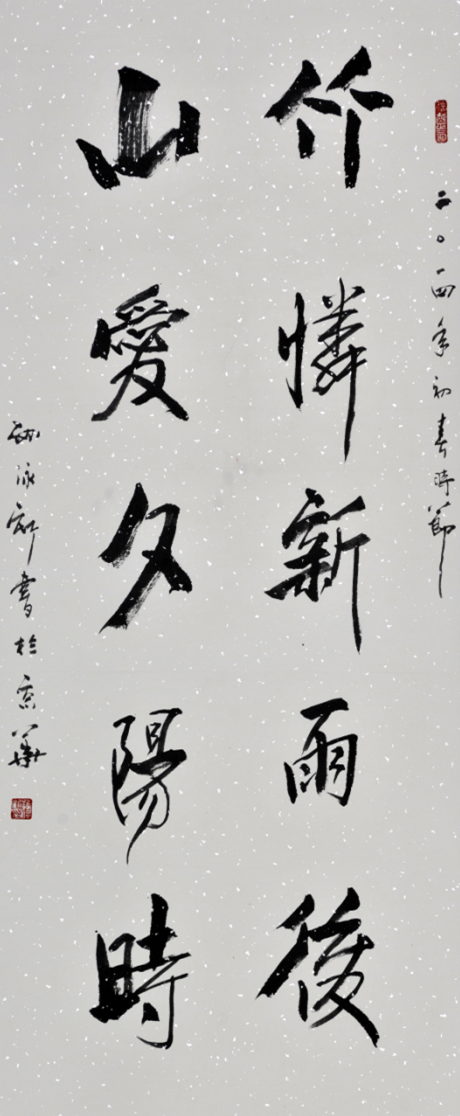 二〇一四年初春時節
竹憐新雨後
山愛夕陽時
書於京華